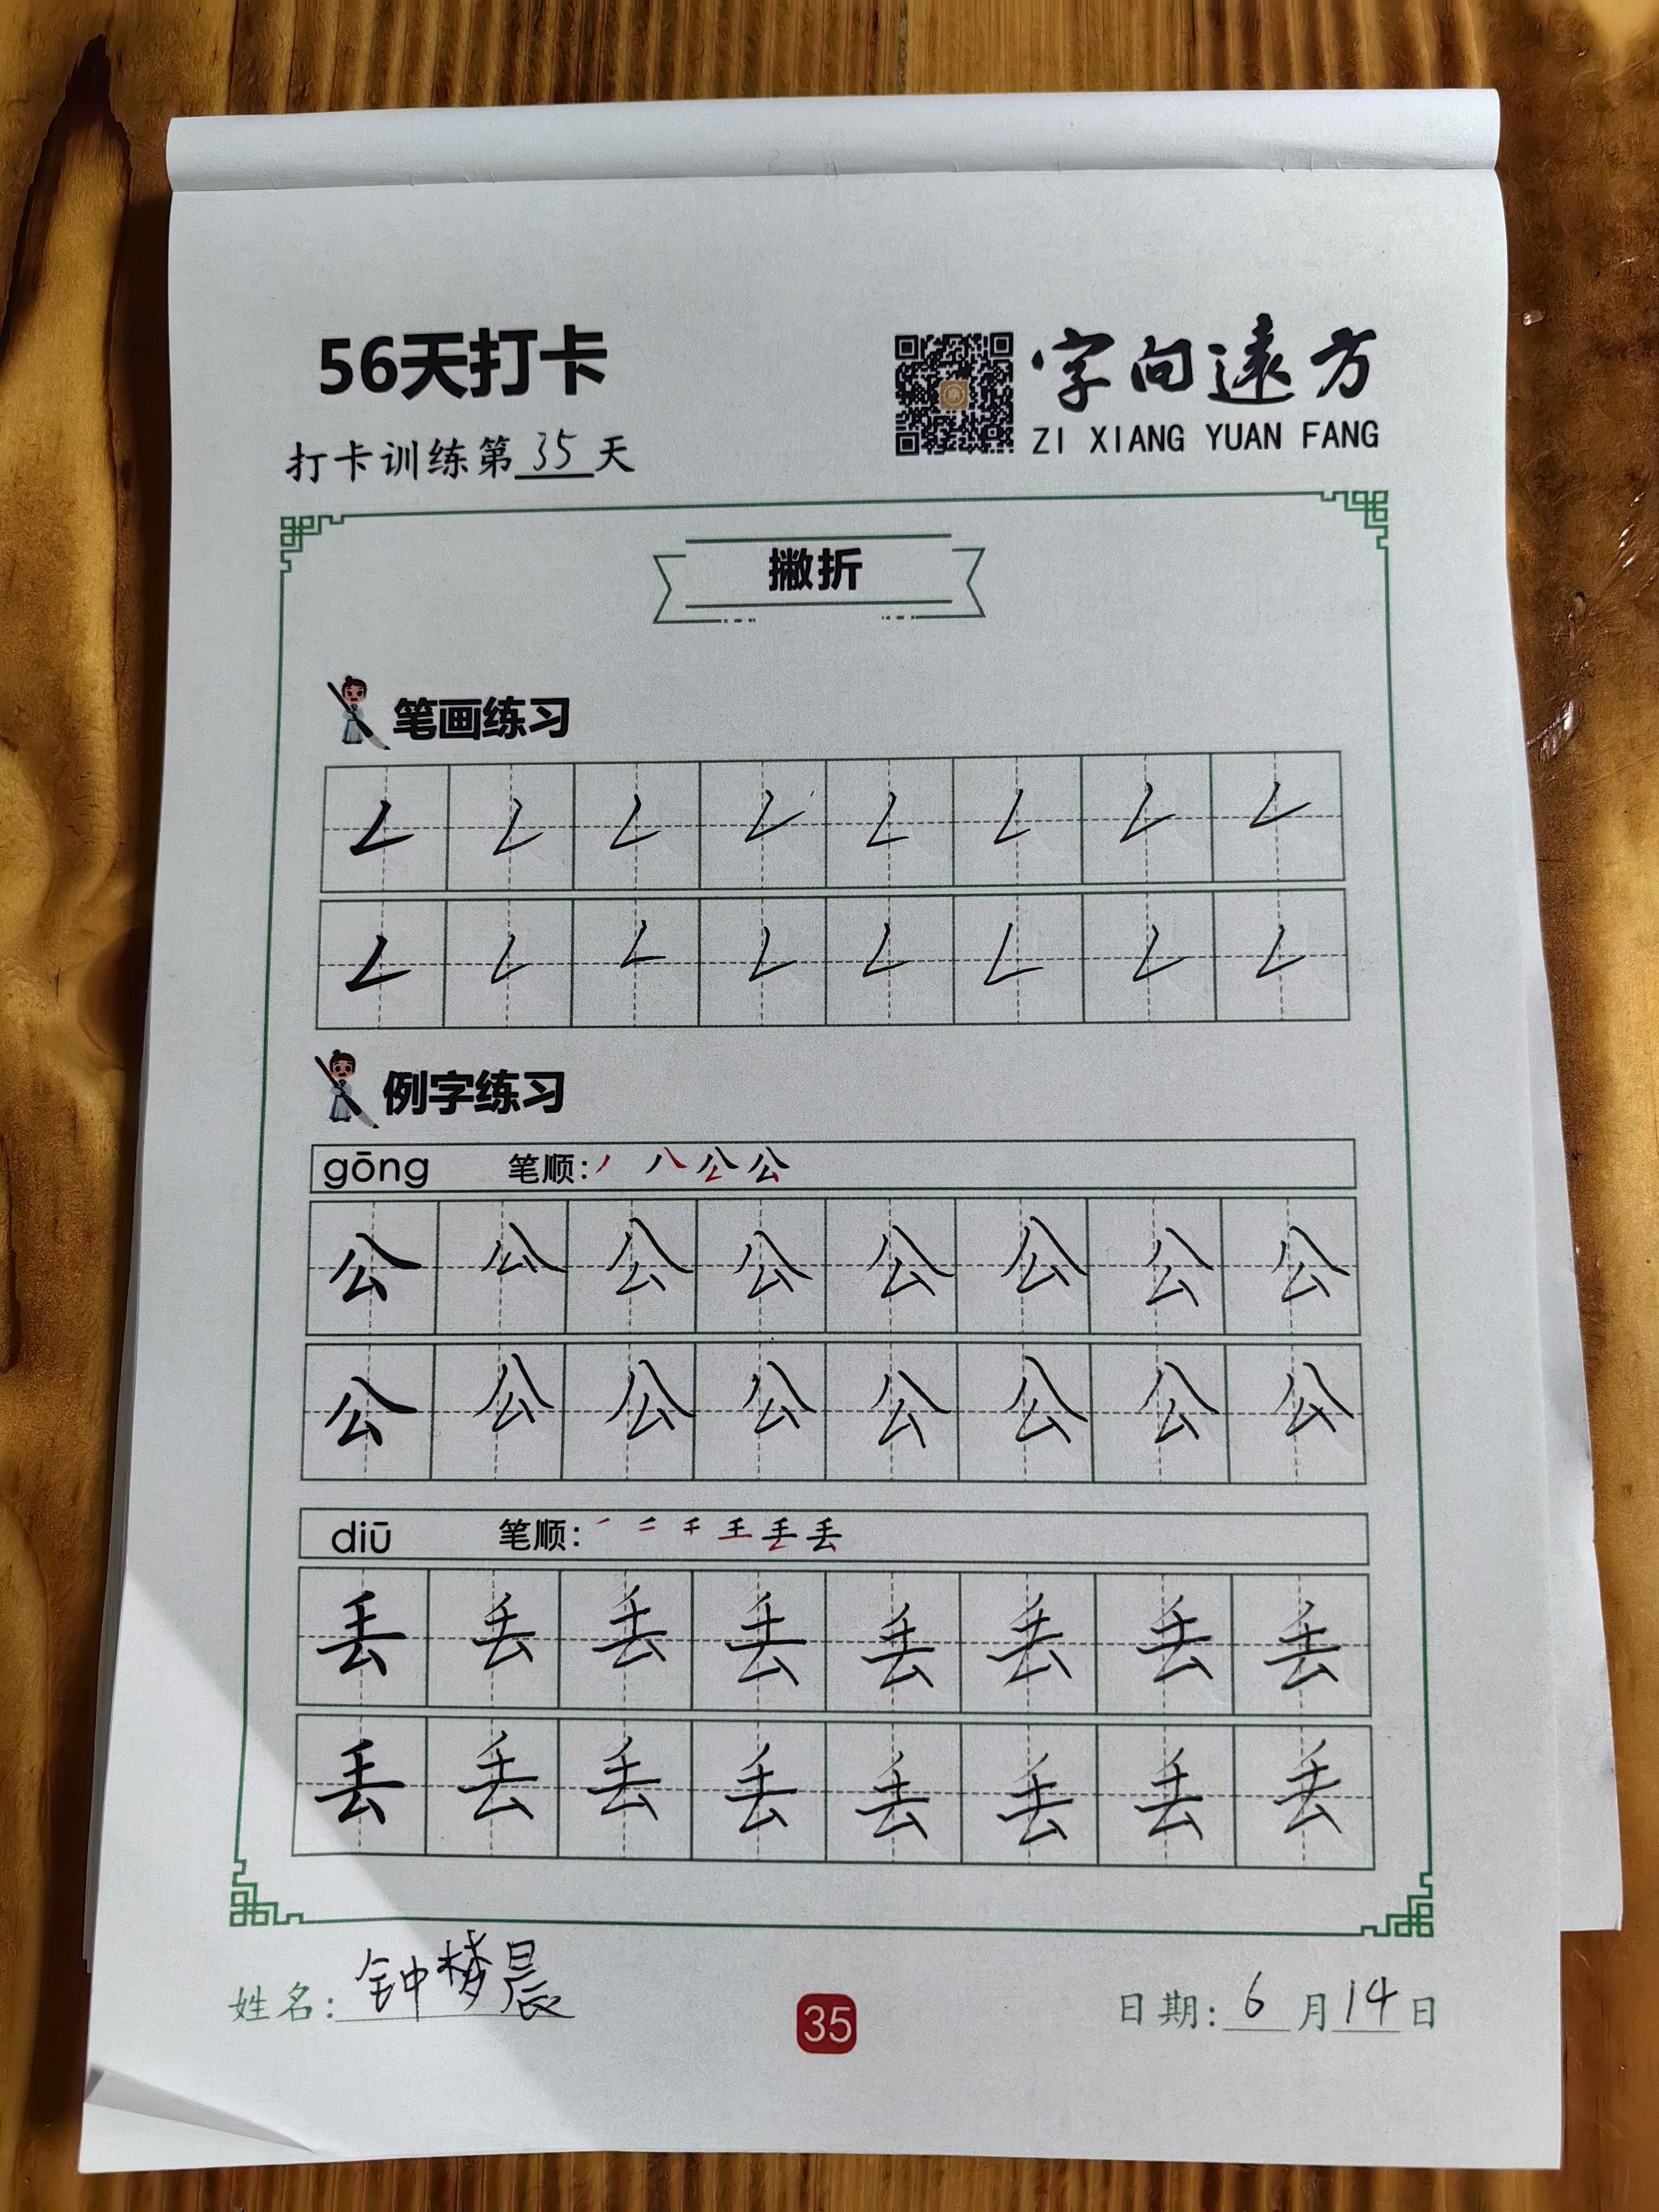 56天打卡
字向遠方
ZI XIANG YUAN FANG
打卡训练第35天
撇折
笔画练习
𠃋 𠃋 𠃋 𠃋 𠃋 𠃋 𠃋 𠃋
𠃋 𠃋 𠃋 𠃋 𠃋 𠃋 𠃋 𠃋
例字练习
gōng 笔顺:
公 公 公 公 公 公 公 公
公 公 公 公 公 公 公 公
diū 笔顺:
丢 丢 丢 丢 丢 丢 丢 丢
丢 丢 丢 丢 丢 丢 丢 丢
姓名: 钟楼晨
35
日期: 6月14日